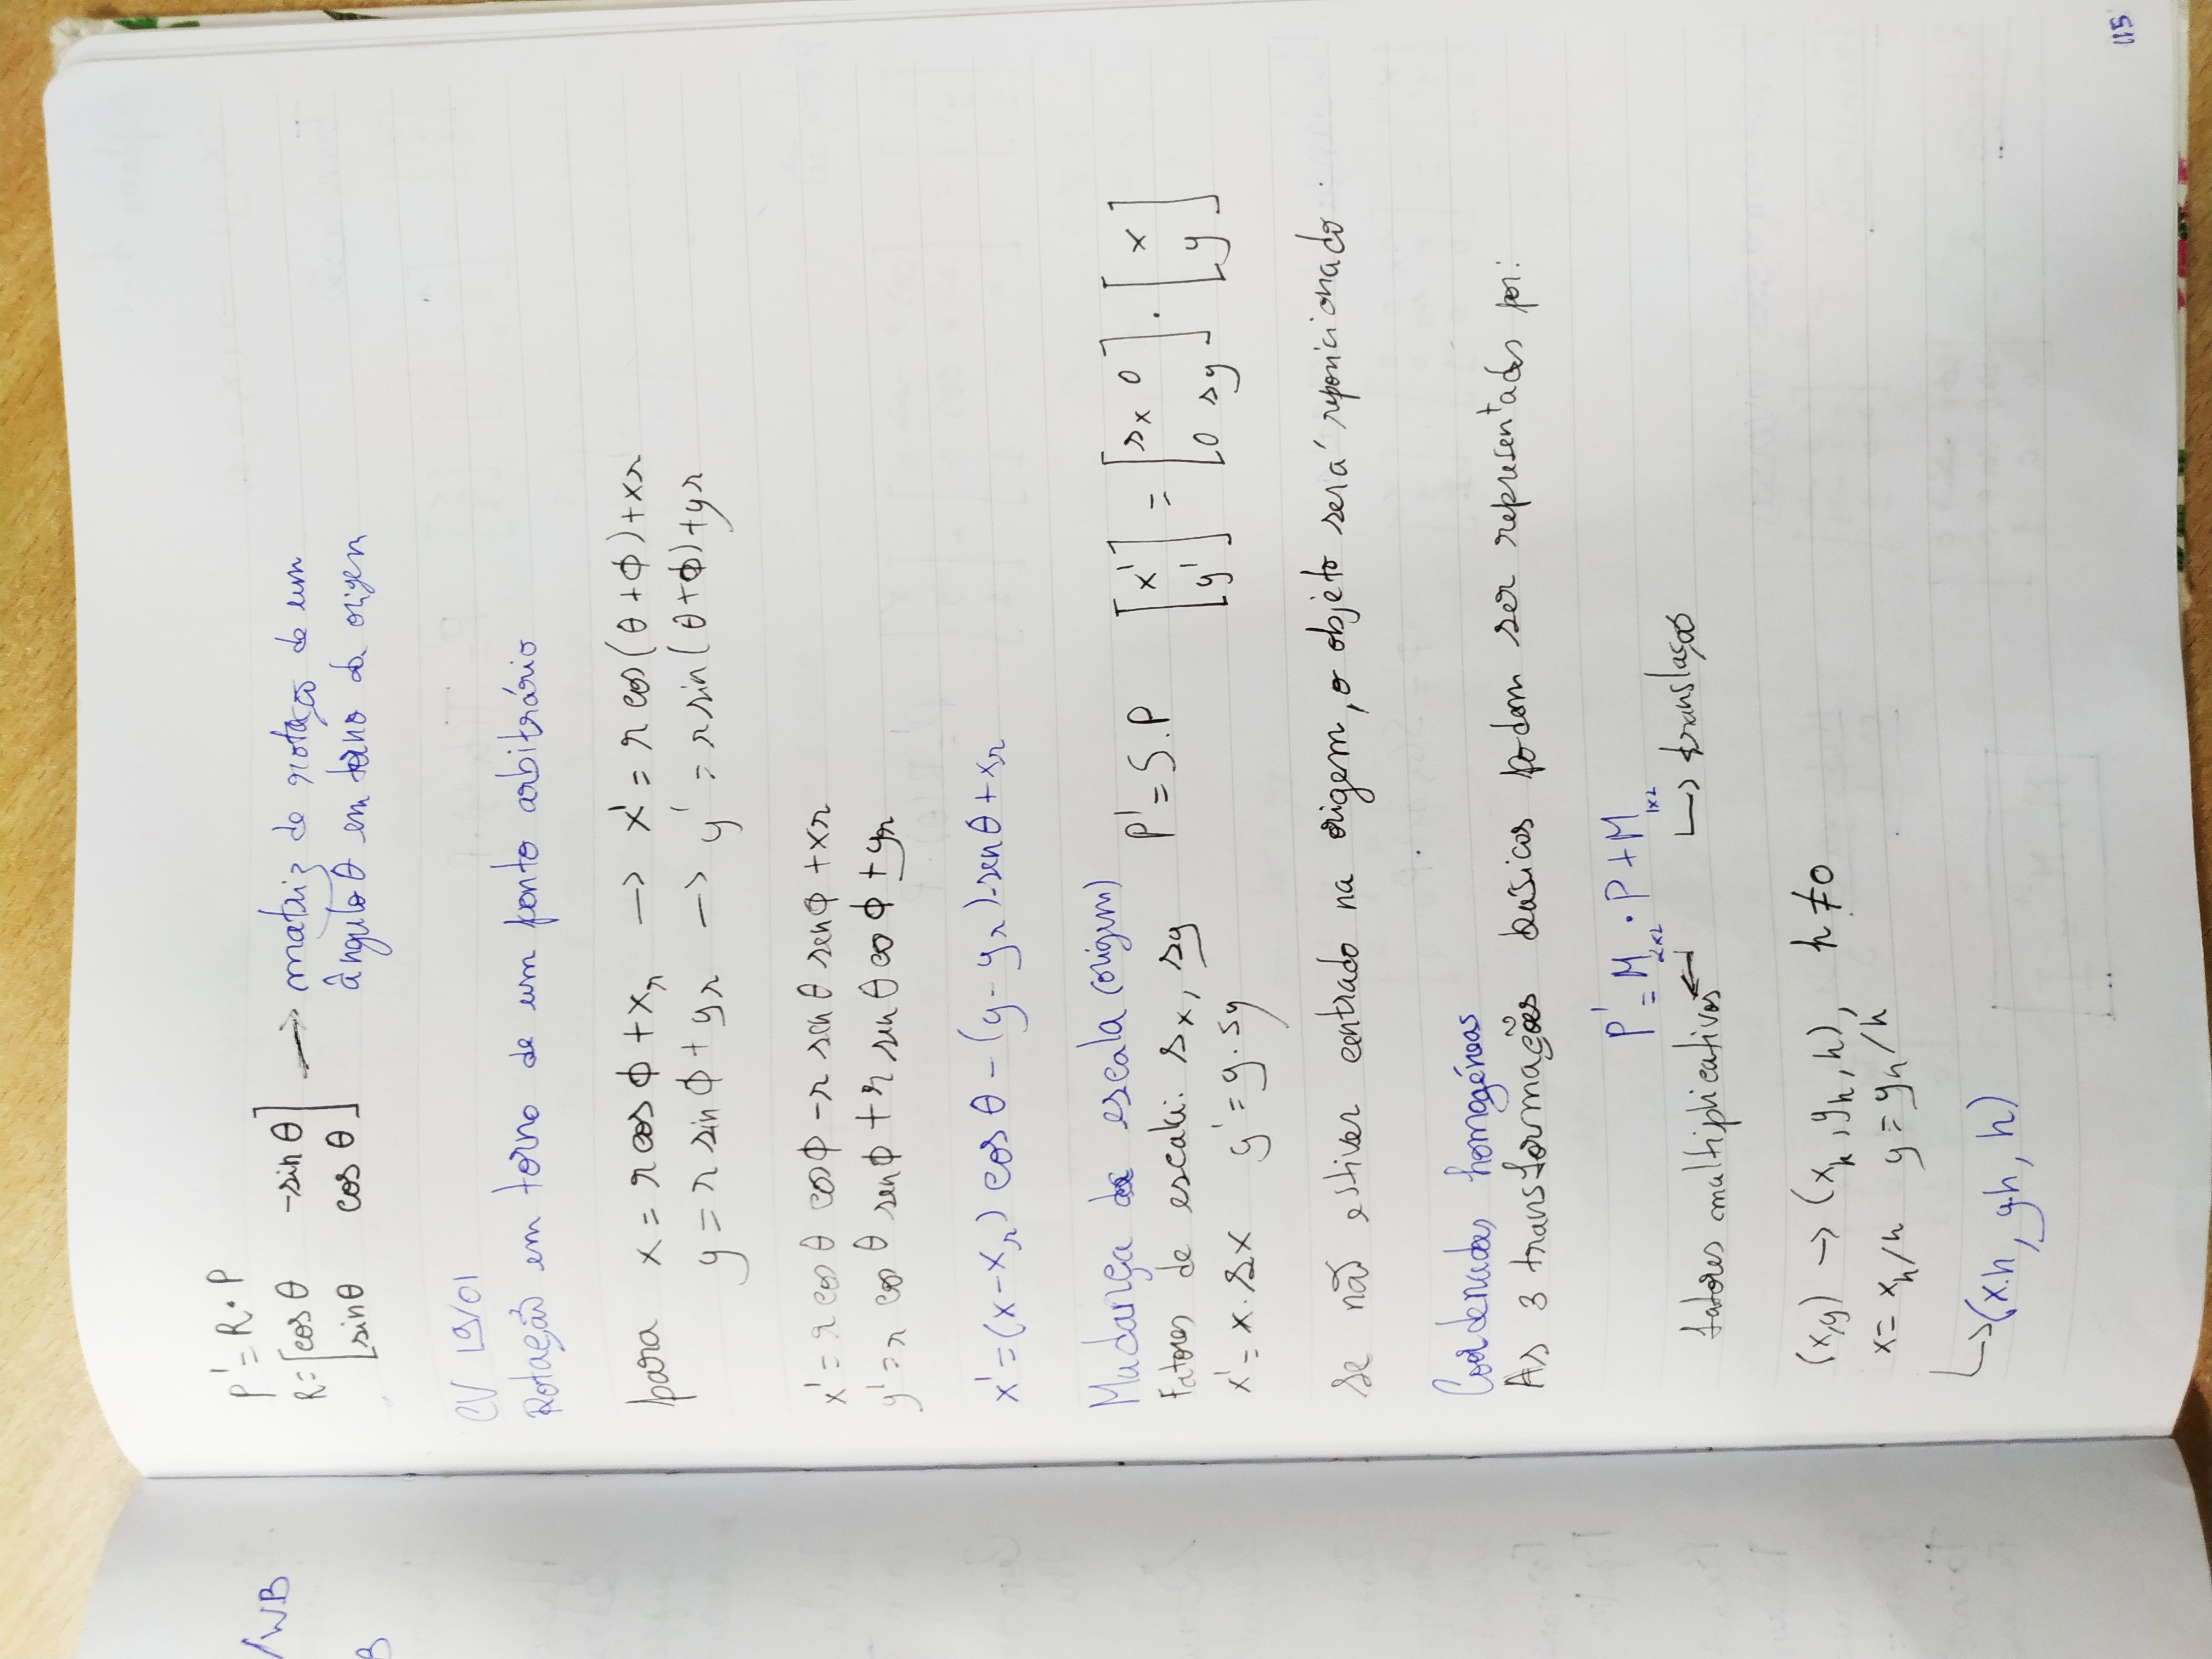 /WB
B
P' = R · P
R = [cos θ -sin θ
sin θ cos θ] → matriz de rotação de um
ângulo θ em torno da origem
CV 19/01
Rotação em torno de um ponto arbitrário
para x = r cos ϕ + x_r → x' = r cos(θ + ϕ) + xr
y = r sin ϕ + yr → y' = r sin(θ + ϕ) + yr
x' = r cos θ cos ϕ - r sen θ sen ϕ + xr
y' = r cos θ sen ϕ + r sen θ co ϕ + yr
x' = (x - x_r) cos θ - (y - y_r) · sen θ + x_r
Mudança de escala (origem)
Fatores de escala: s_x, sy
P' = S . P [x' y'] = [s_x 0 0 sy] · [x y]
x' = x . sx y' = y . sy
Se não estiver centrado na origem, o objeto será reposicionado
Coordenadas homogéneas
As 3 transformações básicas podem ser representadas por:
P' = M_2x2 · P + M_1x2
fatores multiplicativos ← ↳ translação
(x,y) → (x_h, y_h, h), h ≠ 0
x = x_h/h y = y_h/h
↳ (x.h, y.h, h)
115